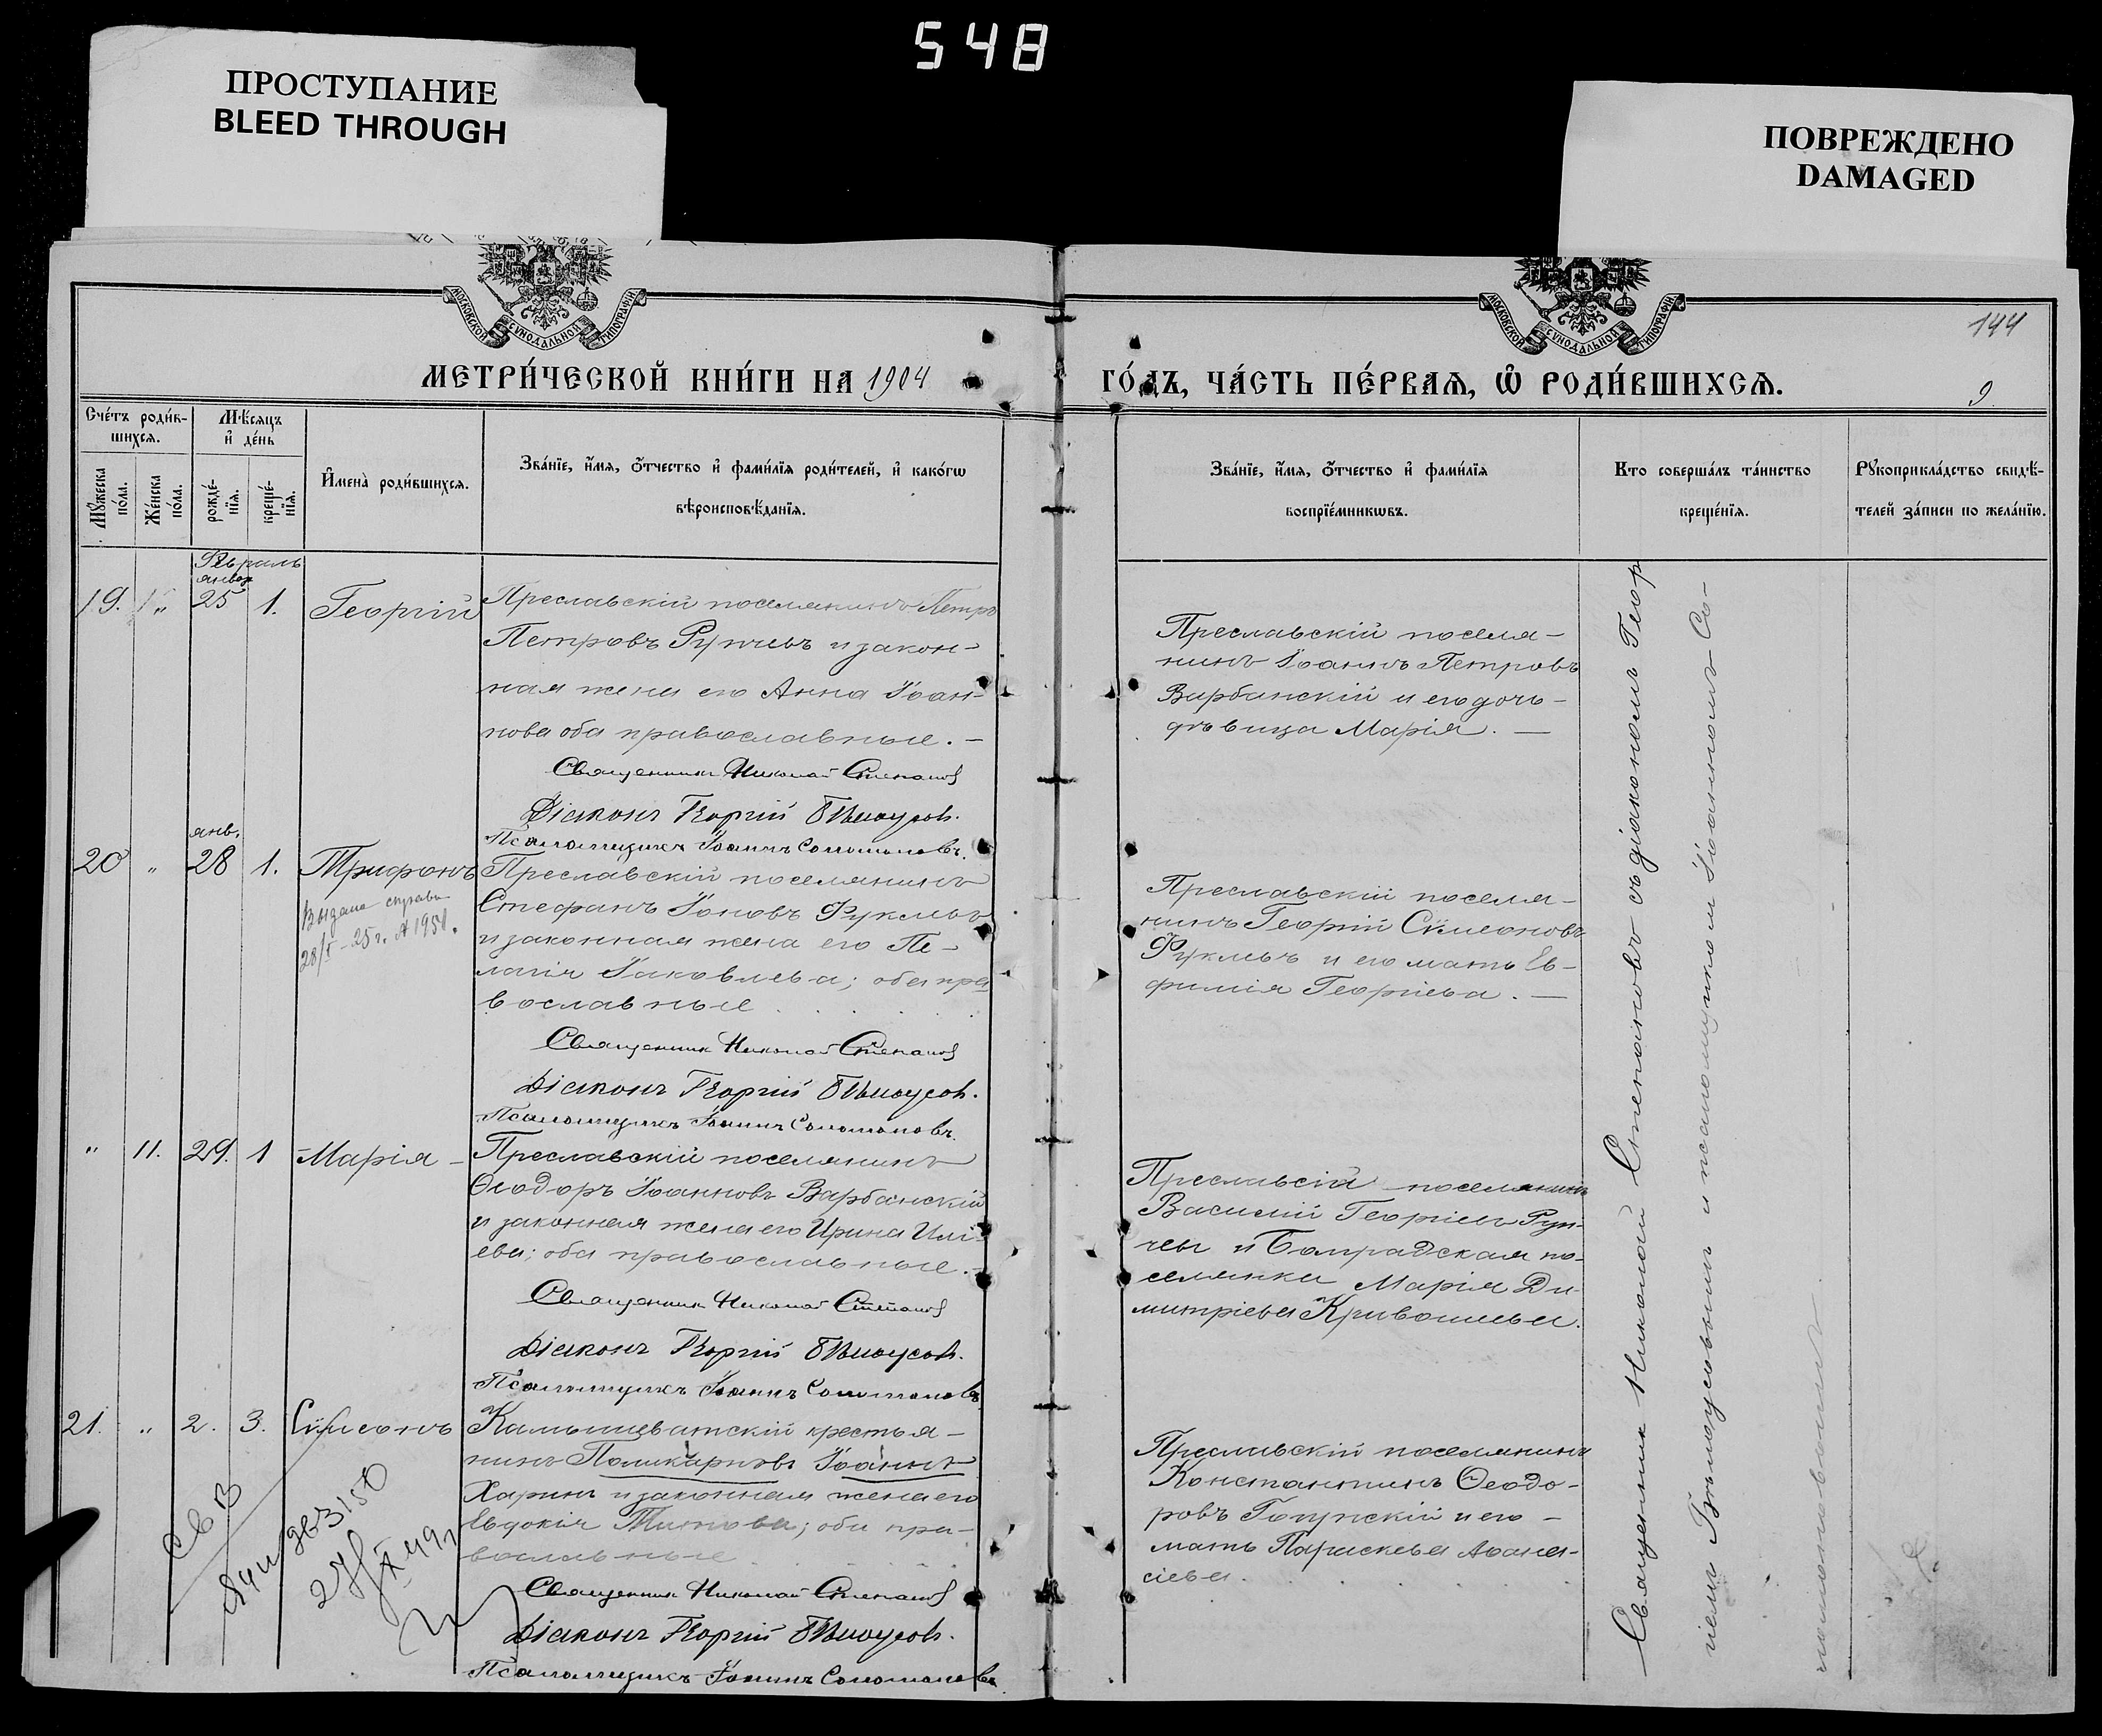 548
ПРОСТУПАНИЕ
BLEED THROUGH
ПОВРЕЖДЕНО
DAMAGED
МОСКОВСКОЙ СѴНОДАЛЬНОЙ ТИПОГРАФІИ
МОСКОВСКОЙ СѴНОДАЛЬНОЙ ТИПОГРАФІИ
144
МЕТРИ́ЧЕСКОЙ КНИ́ГИ НА 1904
ГО́ДЪ, ЧА́СТЬ ПЕ́РВАѦ, Ѿ РОДИ́ВШИХСѦ.
9.
Сче́тъ роди́в-
шихсѧ.
Мѣ́сѧцъ
и҆ де́нь
Мꙋ́жеска
по́ла.
Же́нска
по́ла.
рожде́-
нїѧ.
креще́-
нїѧ.
И҆мена̀ роди́вшихсѧ.
Зва́нїе, и҆́мѧ, ѻ҆́тчество и҆ фами́лїѧ роди́телей, и҆ како́гѡ
вѣроисповѣ́данїѧ.
Зва́нїе, и҆́мѧ, ѻ҆́тчество и҆ фами́лїѧ
воспрїе́мникѡвъ.
Кто соверша́лъ та́инство
креще́нїѧ.
Рꙋкоприкла́дство свидѣ́-
телей за́писи по жела́нїю.
Февраль
январ
19. " 25 1. Георгій
Преславскій поселянинъ Петръ
Петровъ Рупчевъ и закон-
ная жена его Анна Іоан-
нова оба православные. -
Священникъ Николай Степановъ
Діаконъ Георгій Бѣлоусовъ.
Псаломщикъ Іоаннъ Соломоновъ.
Преславскій поселя-
нинъ Іоаннъ Петровъ
Варбанскій и его дочь -
дѣвица Марія. —
янв.
20 " 28 1. Трифонъ
Выдана справка
Преславскій поселянинъ
Стефанъ Іоновъ Фуклевъ
и законная жена его Пе-
лагія Іаковлева; оба пра
вославные
Священникъ Николай Степановъ
Діаконъ Георгій Бѣлоусовъ.
Псаломщикъ Іоаннъ Соломоновъ.
Преславскій поселя-
нинъ Георгій Сѵмеоновъ
Фуклевъ и его мать Ев-
фимія Георгіева. —
" 11. 29. 1 Марія -
Преславскій поселянинъ
Ѳеодоръ Іоанновъ Варбанскій
и законная жена его Ирина Илі-
ева; оба православные. -
Священникъ Николай Степановъ
Діаконъ Георгій Бѣлоусовъ.
Псаломщикъ Іоаннъ Соломоновъ
Преславсій поселянинъ
Василій Георгіевъ Руп-
чевъ и Болградская по-
селянка Марія Ди-
митріева Кривошиева.
21. " 2. 3. Сѵмеонъ
Камышеватскій крестья-
нинъ Поликарповъ Іоаннъ
Харинъ и законная жена его
Евдокія Титова; оба пра-
вославные
Священникъ Николай Степановъ
Діаконъ Георгій Бѣлоусовъ.
Псаломщикъ Іоаннъ Соломоновъ
Преславскій поселянинъ
Константинъ Ѳеодо-
ровъ Гайдарскій и его -
мать Параскева Аѳана-
сіева.
Священникъ Николай Степановъ съ діакономъ Геор
гіемъ Бѣлоусовымъ и псаломщикомъ Іоанномъ Со-
ломоновымъ.